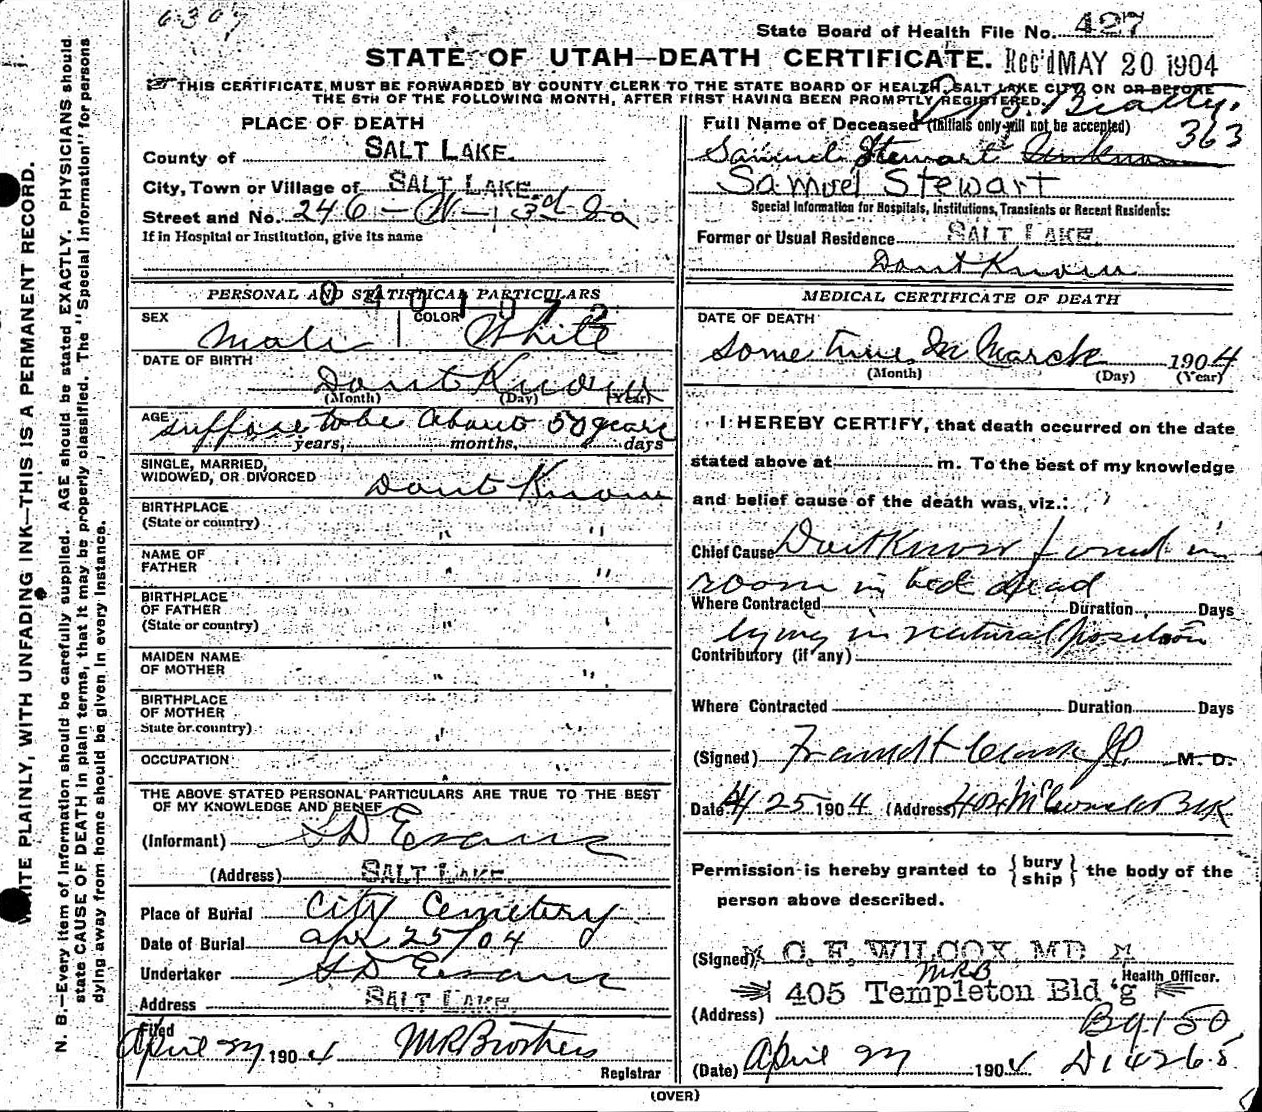 6307
State Board of Health File No. 427
STATE OF UTAH—DEATH CERTIFICATE. Rec'd MAY 20 1904
THIS CERTIFICATE MUST BE FORWARDED BY COUNTY CLERK TO THE STATE BOARD OF HEALTH, SALT LAKE CITY, ON OR BEFORE
THE 5TH OF THE FOLLOWING MONTH, AFTER FIRST HAVING BEEN PROMPTLY REGISTERED. Beatty.
PLACE OF DEATH
County of SALT LAKE.
City, Town or Village of SALT LAKE.
Street and No. 246 - W - 3rd So
If in Hospital or Institution, give its name
Full Name of Deceased (Initials only will not be accepted) 363
Samuel Stewart Unknown
Samuel Stewart
Special Information for Hospitals, Institutions, Transients or Recent Residents:
Former or Usual Residence SALT LAKE.
Dont Know
PERSONAL AND STATISTICAL PARTICULARS
0401072
SEX Male COLOR White
DATE OF BIRTH
Dont Know
(Month) (Day) (Year)
AGE suppose to be about 50 years
years, months, days
SINGLE, MARRIED,
WIDOWED, OR DIVORCED Dont Know
BIRTHPLACE
(State or country) " "
NAME OF
FATHER " "
BIRTHPLACE
OF FATHER
(State or country) " "
MAIDEN NAME
OF MOTHER " "
BIRTHPLACE
OF MOTHER
State or country) " "
OCCUPATION " "
THE ABOVE STATED PERSONAL PARTICULARS ARE TRUE TO THE BEST
OF MY KNOWLEDGE AND BELIEF
(Informant) S D Evans
(Address) SALT LAKE.
Place of Burial City Cemetery
Date of Burial Apr 25/04
Undertaker S D Evans
Address SALT LAKE.
Filed
April 27 1904 MRBrothers
Registrar
MEDICAL CERTIFICATE OF DEATH
DATE OF DEATH
some time In March 1904
(Month) (Day) (Year)
I HEREBY CERTIFY, that death occurred on the date
stated above at m. To the best of my knowledge
and belief cause of the death was, viz.:
Chief Cause Dont Know found in
room in bed dead
Where Contracted Duration Days
lying in natural position
Contributory (if any)
Where Contracted Duration Days
(Signed) Clark JP. M. D.
Date 4/25 1904 (Address) 404 Blk
Permission is hereby granted to {bury
ship} the body of the
person above described.
(Signed) C. F. WILCOX, MD
MRB Health Officer.
405 Templeton Bld'g
(Address)
B 9150
(Date) April 27 1904 D 14265
(OVER)
N. B.—Every item of information should be carefully supplied. AGE should be stated EXACTLY. PHYSICIANS should
state CAUSE OF DEATH in plain terms, that it may be properly classified. The "Special Information" for persons
dying away from home should be given in every instance.
WRITE PLAINLY, WITH UNFADING INK—THIS IS A PERMANENT RECORD.